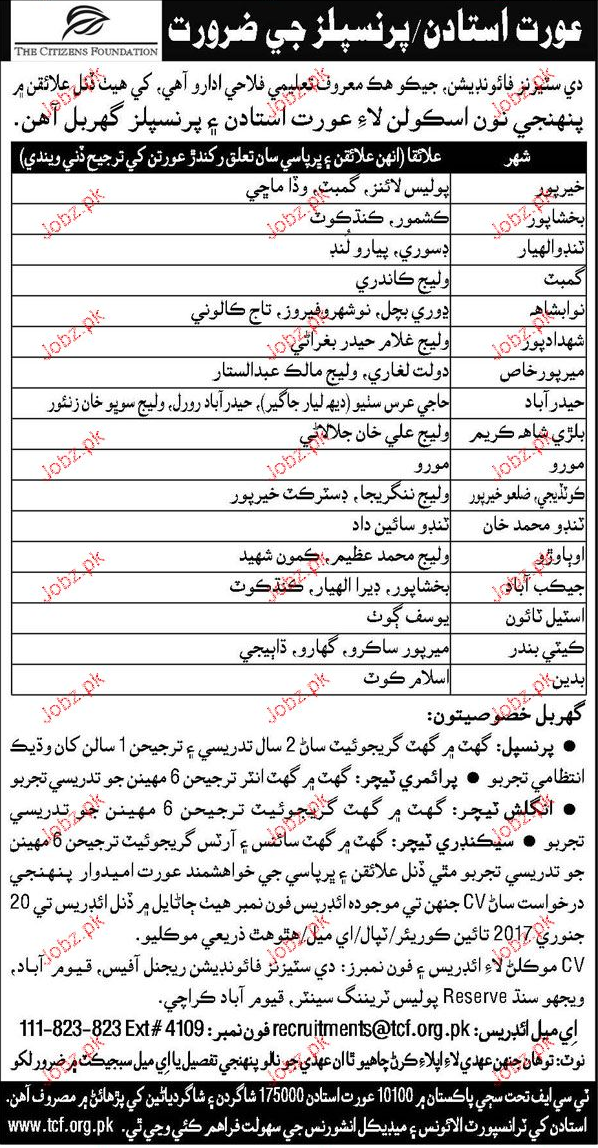 عورت استادن/پرنسپلز جي ضرورت
THE CITIZENS FOUNDATION
دي سٽيزنز فائونڊيشن, جيڪو هڪ معروف تعليمي فلاحي ادارو آهي, کي هيٺ ڏنل علائقن ۾
پنهنجي نون اسڪولن لاءِ عورت استادن ۽ پرنسپلز گهربل آهن.
شهر علائقا (انهن علائقن ۽ ڀرپاسي سان تعلق رکندڙ عورتن کي ترجيح ڏني ويندي)
خيرپور پوليس لائنز, گمبٽ, وڏا ماڇي
بخشاپور ڪشمور, ڪنڌڪوٽ
ٽنڊوالهيار ڊسوري, پيارو لُنڊ
گمبٽ وليج کاندري
نوابشاهه ڊوري بچل, نوشهروفيروز, تاج ڪالوني
شهدادپور وليج غلام حيدر بغراڻي
ميرپورخاص دولت لغاري, وليج مالڪ عبدالستار
حيدرآباد حاجي عرس سٺيو (ديهه ليار جاگير), حيدرآباد رورل, وليج سوڀو خان زنئور
بلڙي شاهه ڪريم وليج علي خان جلالاڻي
مورو مورو
ڪوٽڏيجي, ضلعو خيرپور وليج ننگريجا, ڊسٽرڪٽ خيرپور
ٽنڊو محمد خان ٽنڊو سائين داد
اوٻاوڙو وليج محمد عظيم, ڪمون شهيد
جيڪب آباد بخشاپور, ڊيرا الهيار, ڪنڌڪوٽ
اسٽيل ٽائون يوسف ڳوٺ
ڪيٽي بندر ميرپور ساڪرو, گهارو, ڌاٻيجي
بدين اسلام ڪوٽ
گهربل خصوصيتون:
● پرنسپل: گهٽ ۾ گهٽ گريجوئيٽ ساڻ 2 سال تدريسي ۽ ترجيحن 1 سالن کان وڌيڪ
انتظامي تجربو ● پرائمري ٽيچر: گهٽ ۾ گهٽ انٽر ترجيحن 6 مهينن جو تدريسي تجربو
● انگلش ٽيچر: گهٽ ۾ گهٽ گريجوئيٽ ترجيحن 6 مهينن جو تدريسي
تجربو ● سيڪنڊري ٽيچر: گهٽ ۾ گهٽ سائنس ۽ آرٽس گريجوئيٽ ترجيحن 6 مهينن
جو تدريسي تجربو مٿي ڏنل علائقن ۽ ڀرپاسي جي خواهشمند عورت اميدوار پنهنجي
درخواست ساڻ CV جنهن تي موجوده ائڊريس فون نمبر هيٺ ڄاڻايل ۾ ڏنل ائڊريس تي 20
جنوري 2017 تائين ڪوريئر/ٽپال/اي ميل/هٿوهٿ ذريعي موڪليو.
CV موڪلڻ لاءِ ائڊريس ۽ فون نمبرز: دي سٽيزنز فائونڊيشن ريجنل آفيس, قيوم آباد,
ويجهو سنڌ Reserve پوليس ٽريننگ سينٽر, قيوم آباد ڪراچي.
اِي ميل ائڊريس: recruitments@tcf.org.pk فون نمبر: 111-823-823 Ext# 4109
نوٽ: توهان جنهن عهدي لاءِ اپلاءِ ڪرڻ چاهيو ٿا ان عهدي جو نالو پنهنجي تفصيل يا اِي ميل سبجيڪٽ ۾ ضرور لکو
ٽي سي ايف تحت سڄي پاڪستان ۾ 10100 عورت استادن 175000 شاگردن ۽ شاگردياڻين کي پڙهائڻ ۾ مصروف آهن.
استادن کي ٽرانسپورٽ الائونس ۽ ميڊيڪل انشورنس جي سهولت فراهم ڪئي وڃي ٿي. www.tcf.org.pk
Jobz.pk